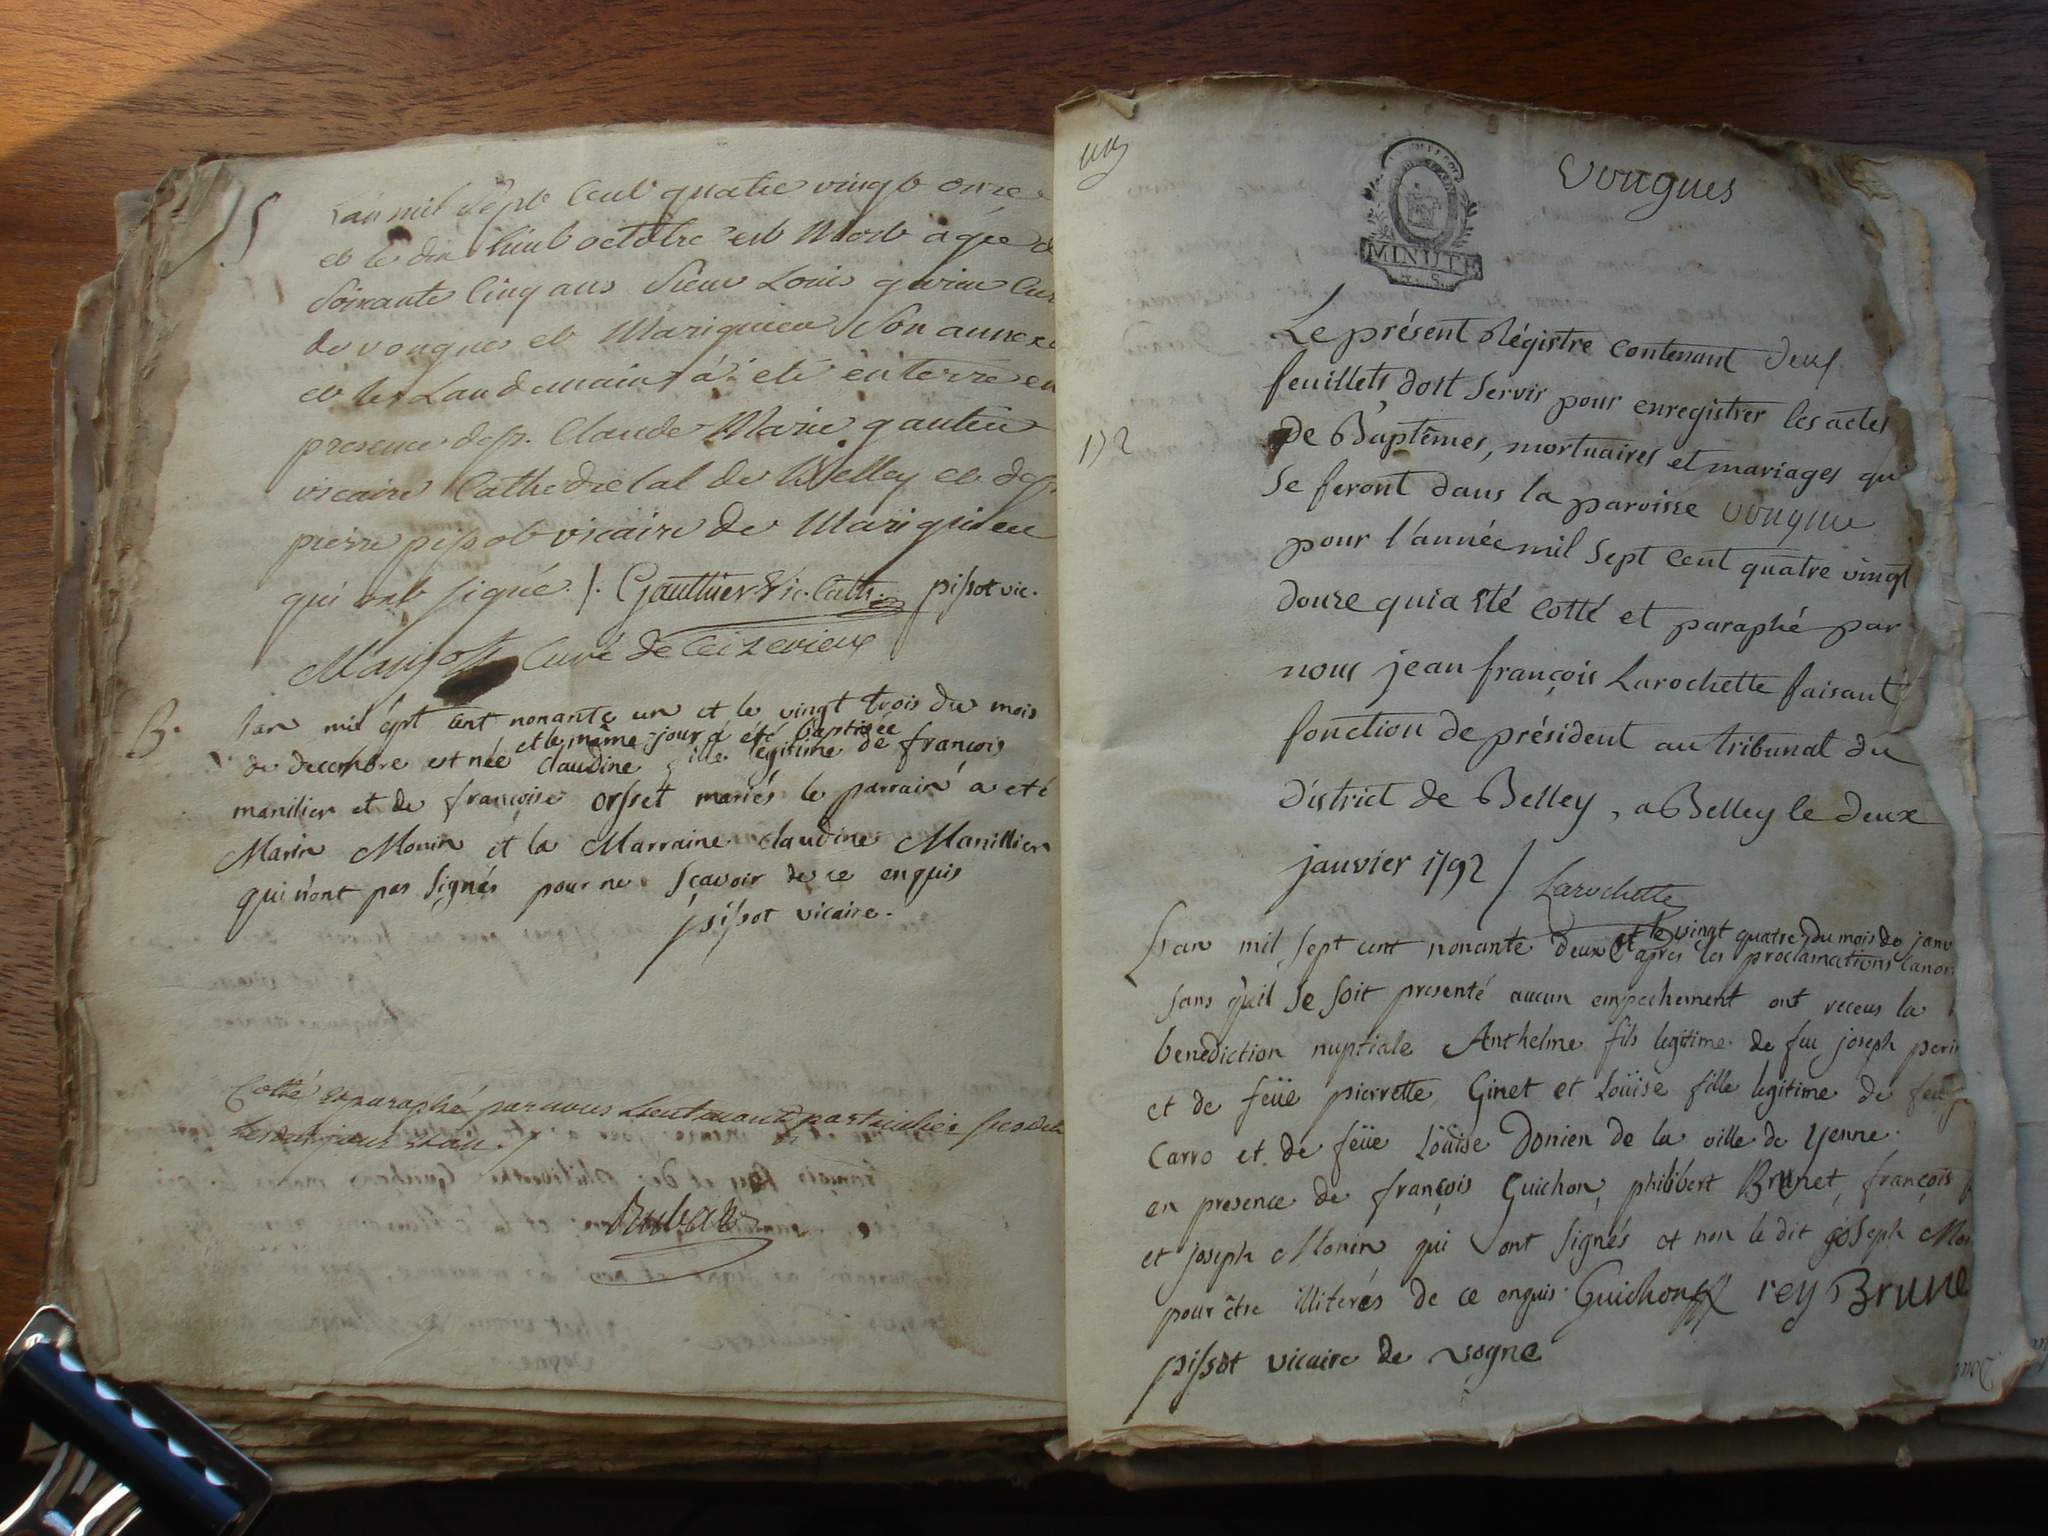 S
L'an mil sept Cent quatre vingt onze
et le dix huit octobre est Mort agée de
Soixante Cinq ans Sieur Louis
de vongnes et Marignieu Son annexe
et le Landemain à été enterré en
presence de sr. Claude Marie gautier
vicaire Cathedrlal de Belley et de sr.
pierre pissot vicaire de Marignieu
qui ont signé ./. Gauthier Vic. Cath. pissot vic.
Curé de Ceizerieux
B.
L'an mil sept cent nonante un et le vingt trois du mois
et le même jour a été baptisée
de decembre est née claudine fille légitime de françois
manilier et de françoise orsset mariés le parrain a eté
Marin Monin et la Marraine claudine Manillier
qui n'ont pas signés pour ne sçavoir de ce enquis
pissot vicaire.
Cotté et paraphé par nous Lieutenant particulier
les dits jour et an.
Rubat
un
Vongnes
MINUTE
Le présent Régistre contenant deux
feuillets doit servir pour enregistrer les actes
de Baptêmes, mortuaires et mariages qui
Se feront dans la paroisse vongne
1792
pour l'année mil Sept cent quatre vingt
douze qui a eté cotté et paraphé par
nous jean françois Larochette faisant
fonction de président au tribunal du
District de Belley, a Belley le deux
janvier 1792 / Larochette
et le vingt quatre du mois de janv
L'an mil sept cent nonante deux et après les proclamations canon
sans qu'il se soit presenté aucun empechement ont receus la
benediction nuptiale Anthelme fils legitime de feu joseph peri
et de feüe pierrette Ginet et Loüise fille legitime de feu
Carro et de feüe Loüise Donien de la ville de yenne.
en presence de françois Guichon, philibert Brunet, françois
et joseph Monin qui ont signés et non le dit joseph Mon
pour être illiterés de ce enquis. Guichon rey Brune
pissot vicaire de vogne